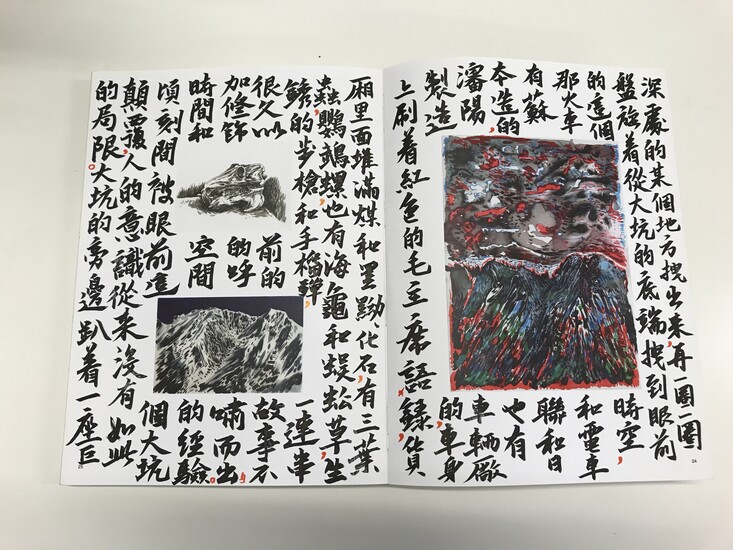 深處的某個地方拽出來,再一圈一圈
盤旋着從大坑的底端拽到眼前
的這個時空,
那火車和電車
有蘇聯和日
本造的也有
瀋陽車輛廠
製造的車身
上刷着紅色的毛主席語錄,貨
24
厢里面堆滿煤和黑黝、化石,有三葉
蟲,鸚鵡螺,也有海龜和蜈蚣草,生
銹的步槍和手榴彈,一連串
很久以前的故事不
加修飾的呼嘯而出,
時間和空間的經驗。
頃刻間被眼前這個大坑
顛覆,人的意識從來沒有如此
的局限。大坑的旁邊趴着一座巨
25